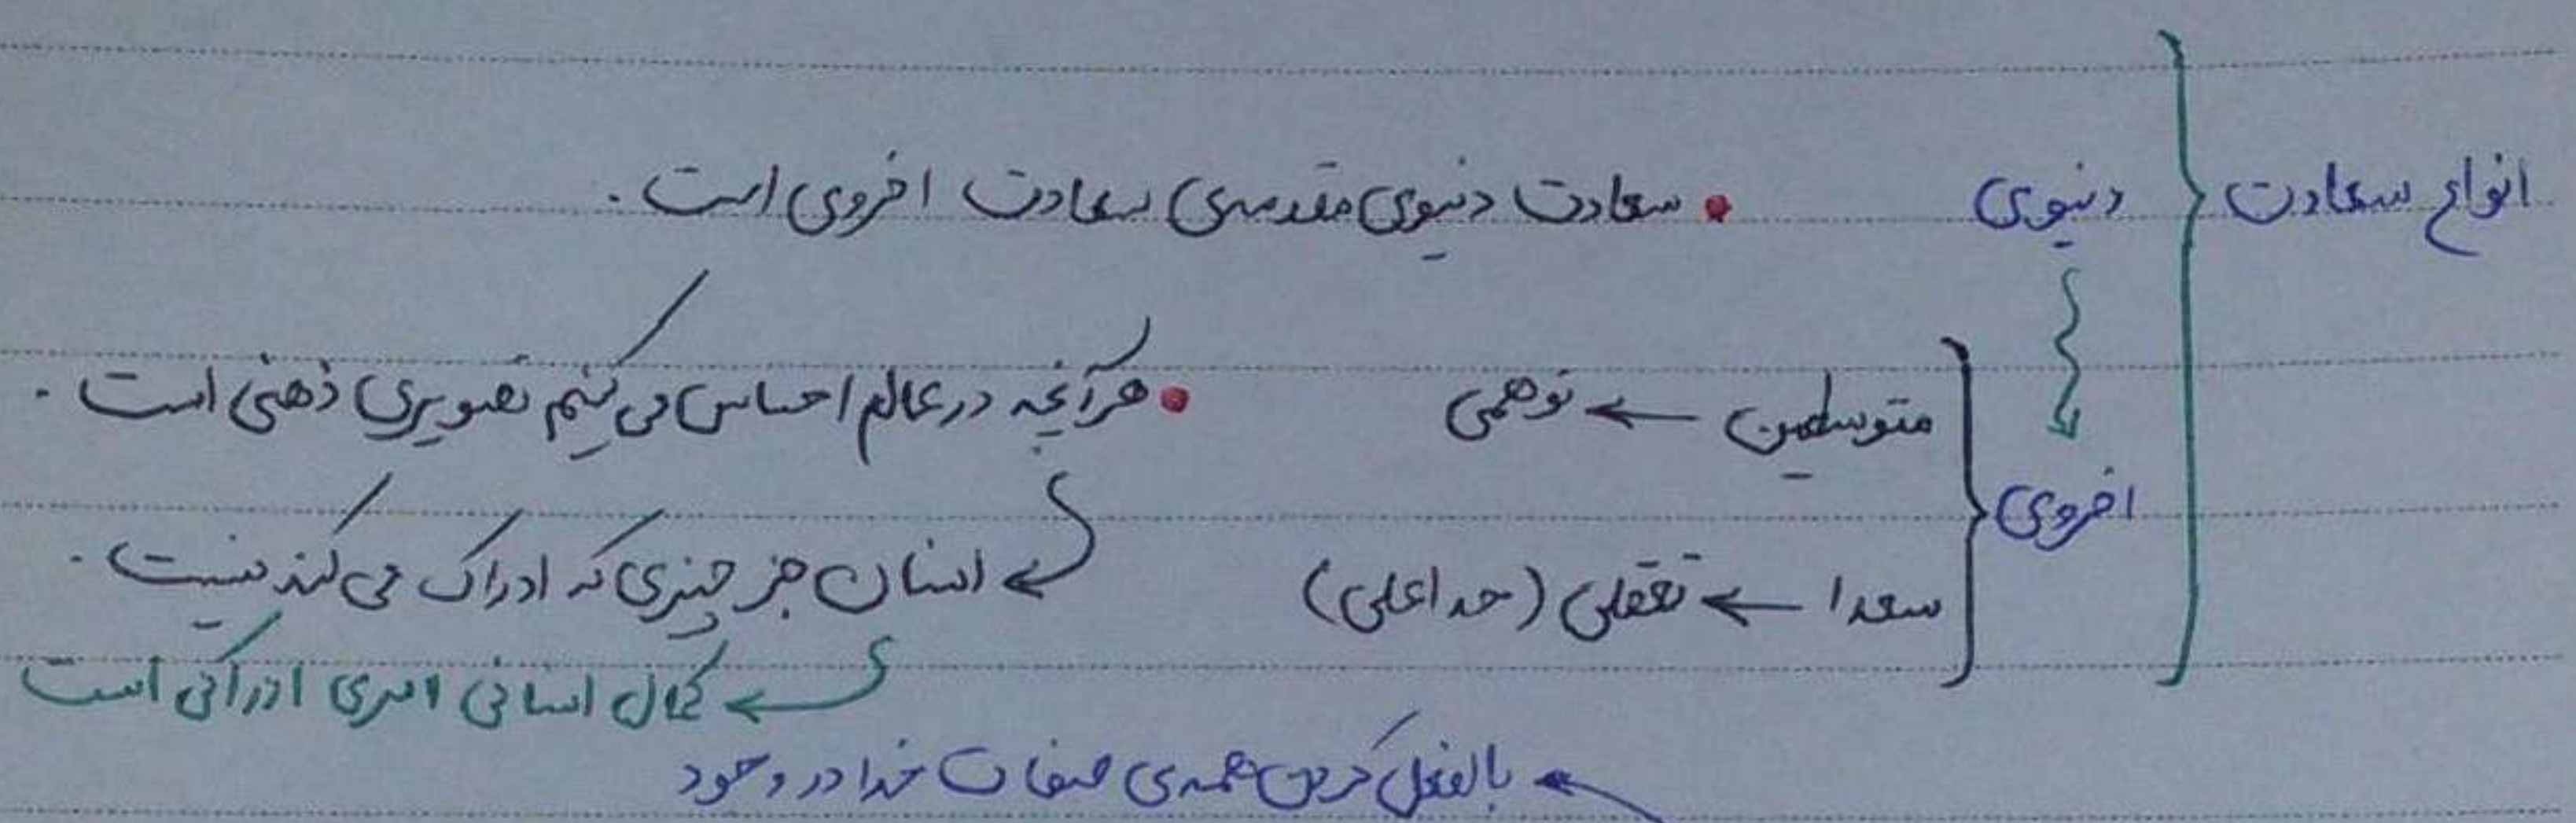 انواع سعادت
دنیوی
• سعادت دنیوی مقدمه‌ی سعادت اخروی است.
اخروی
متوسطین ← توهمی
سعدا ← تعقلی (حد اعلی)
• هرآنچه در عالم احساس می‌کنیم تصویری ذهنی است.
← انسان جز چیزی که ادراک می‌کند نیست.
← کمال انسانی امری ادراکی است
← بالفعل کردن همه‌ی صفات خدا در وجود